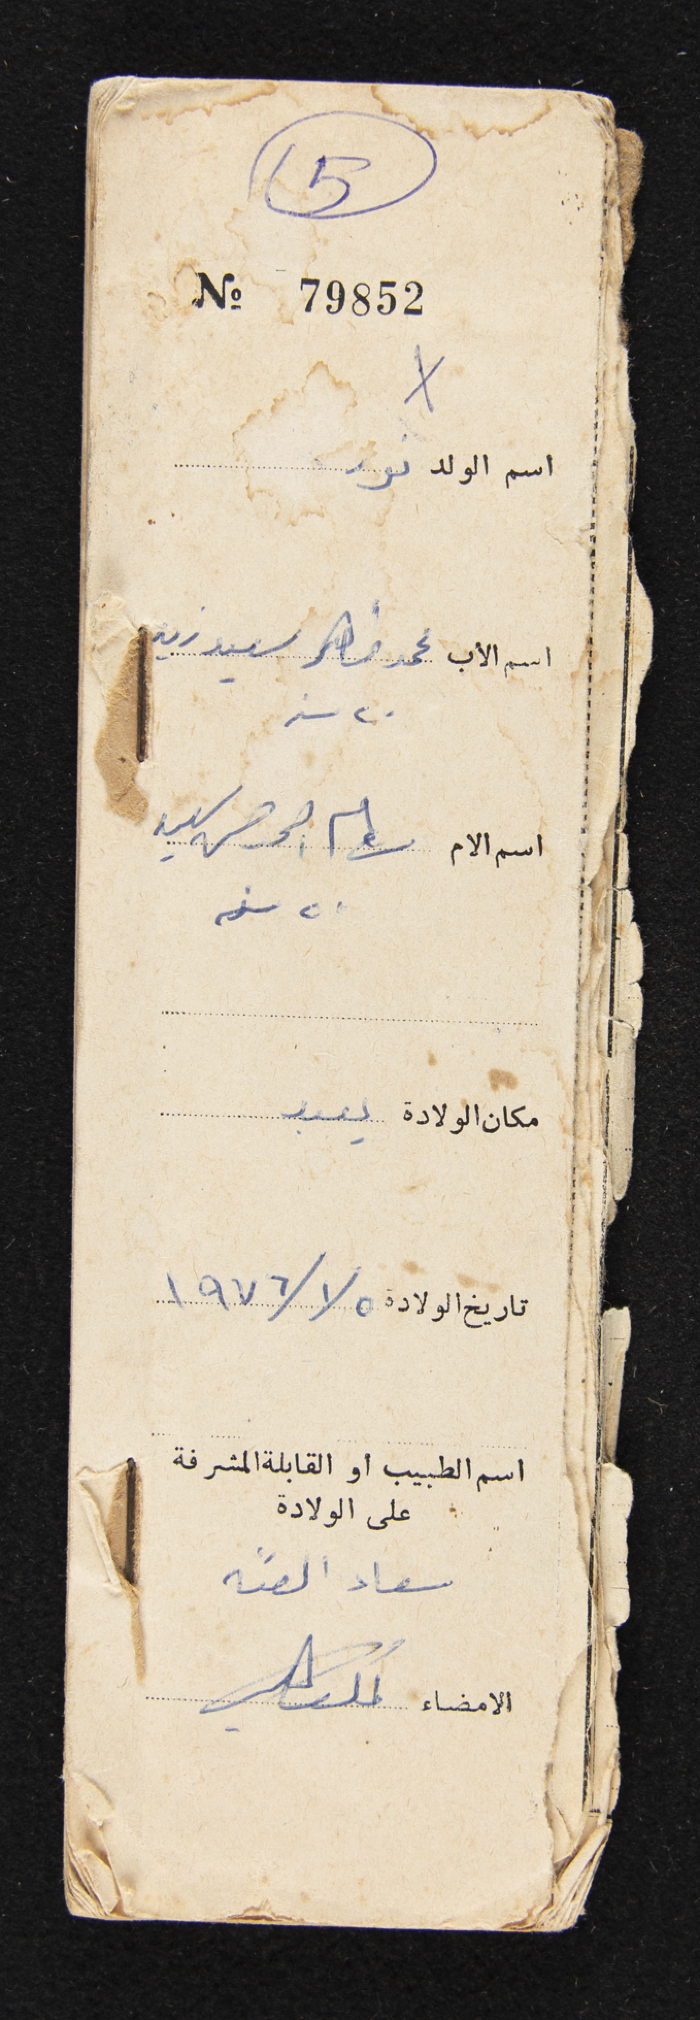 5
№ 79852
X
اسم الولد نور
اسم الأب محمد ظاهر سعيد زيد
٢٠ سنه
اسم الام سعيد
٢٠ سنه
مكان الولادة يعبد
تاريخ الولادة ٥/١/١٩٧٦
اسم الطبيب او القابلة المشرفة
على الولادة
سعاد
الامضاء